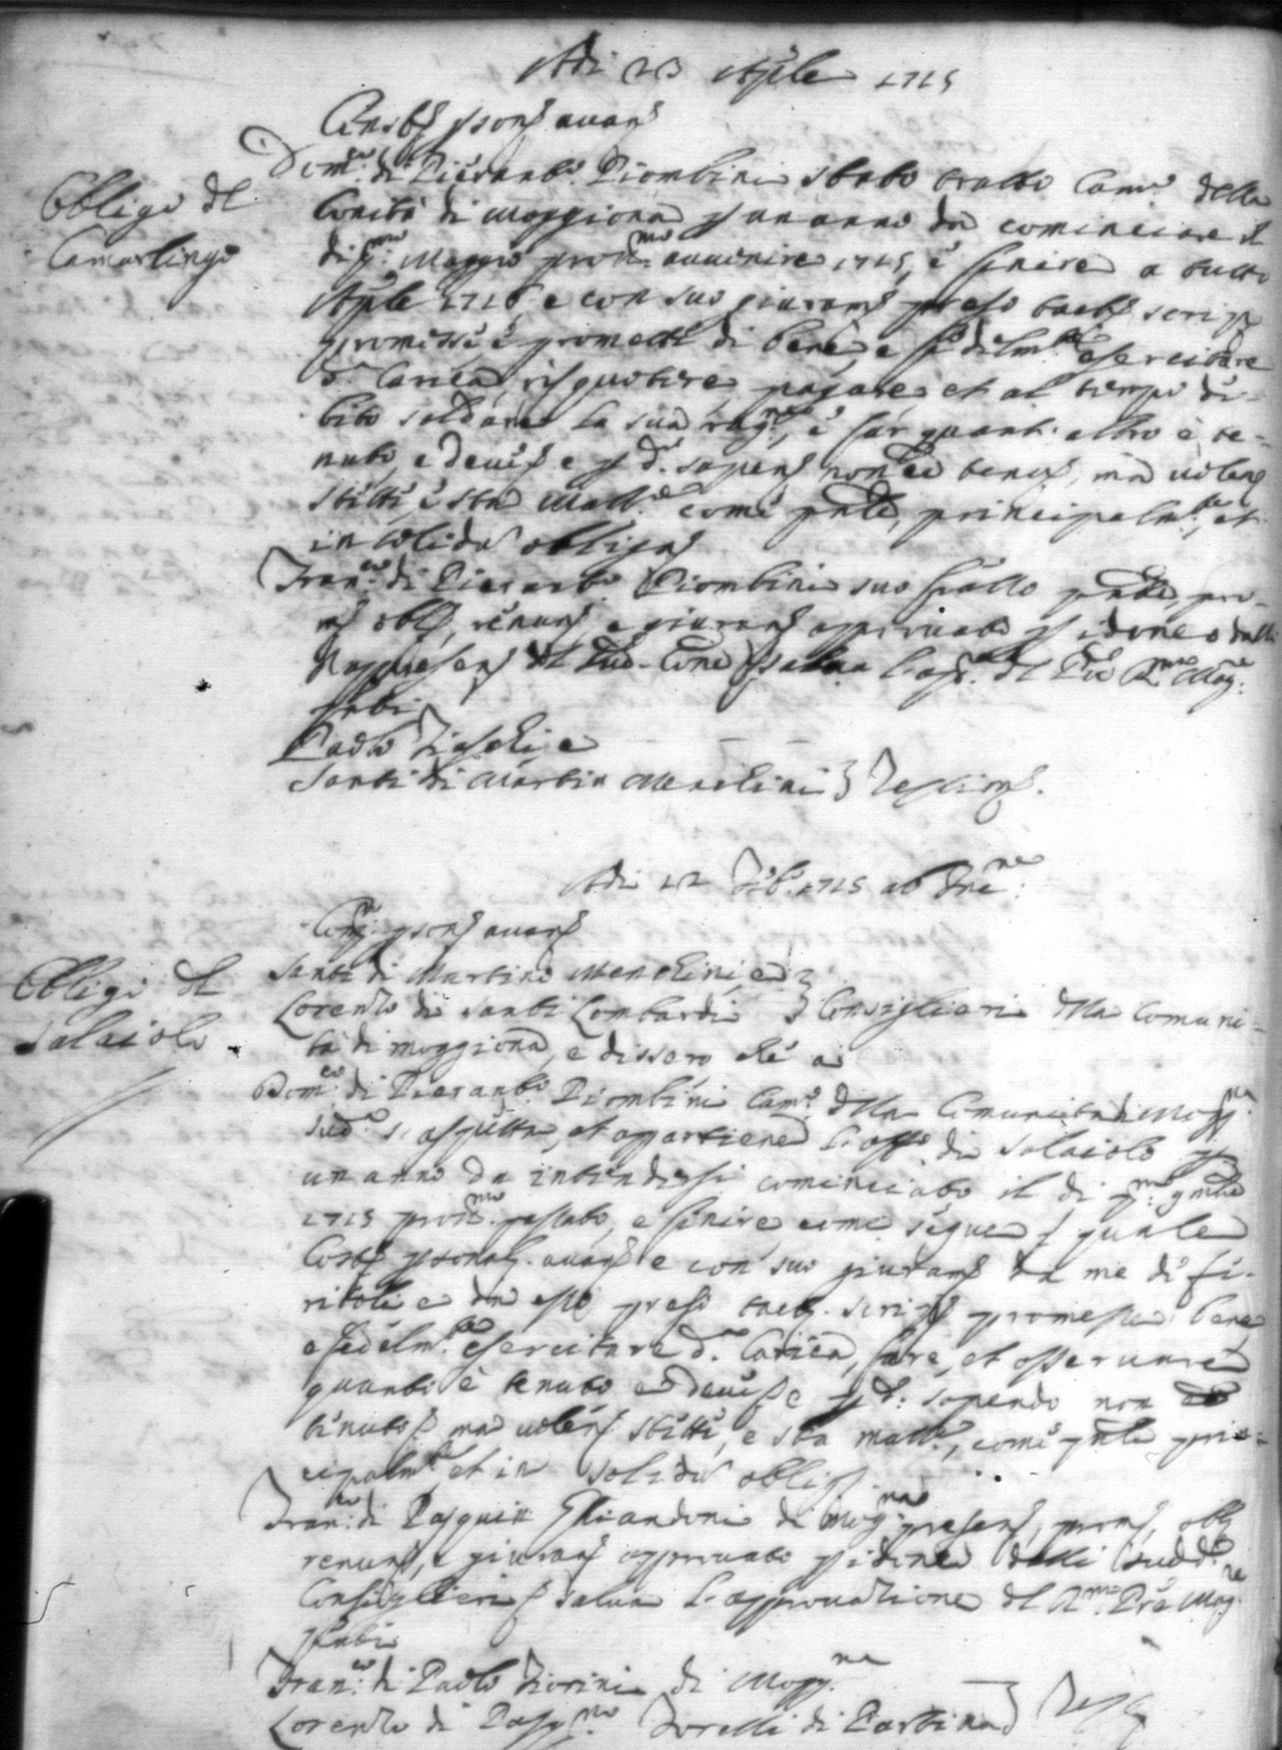 Adi 23 Aple 1715
Constò psonã auanti
Obligo del
Camarlingo
Dom.co di Pierant.o Piombini stato tratto Cam.o della
Comità di Moggiona p un anno da cominciare il
di p.mo Maggio pross.mo auuenire 1715, e finire a tutto
Aple 1716 e con suo giuram preso tact scrip
promisse e promette di bene, e fidelm.te esercitare
d.a Carica, risquotere, pagare, et al tempo de-
bito soldare la sua rag.ne, e far quanto altro è te-
nuto, e deue e p d.o sapens non ee tenut, ma uolens
stette e sta Mall.re come pnte, principalm.te et
in solidu obligan
Fran.co di Pierant.o Piombini suo fratello pnte, pro-
m obl, renun e giuran approuato p idoneo dalli
Rappresen del sud Com salua l'ap del Pre R.mo Mag.re
pnti
Paolo Fraschi e
Santi di Martin Menchini } Testimoni.
Adi 12 Feb. 1715 ab Inc.ne
Comp. psonã auanti
Obligo del
Salaiolo
Santi di Martino Menchini, e }
Lorenzo di Santi Lombardi } Consiglieri della Comuni-
tà di Moggiona, e dissero che a
Dom.co di Pierant.o Piombini Cam.o della Comunità di Mogg.na
sud.o s'aspetta, et appartiene l'affo di Salaiolo p
un anno da intendersi cominciato il di p.mo gennaio
1715 pross.mo passato, e finire come segue, il quale
Cost psonalm. auanti e con suo giuram da me de fi-
ritoli e da esso preso tact. scrip promesse bene
e fedelm.te esercitare d.a Carica, fare, et osseruare
quanto è tenuto e deue e p d.o: sapendo non ee
tenuto, ma uolens stette, e sta mall.re, come pnte prin-
cipalm.te et in solidu oblig
Fran.co di Pasquin Ghiandoni di Mog.na presen, prom, obl
renun, e giuran approuato p idoneo dalli sudd.i
Consiglieri, salua l'approuazione del R.mo Pre Mag.re
pnti
Fran.co di Paolo Fiorini di Mogg.na
Lorenzo di Pasq.no Torelli di Partina } Test